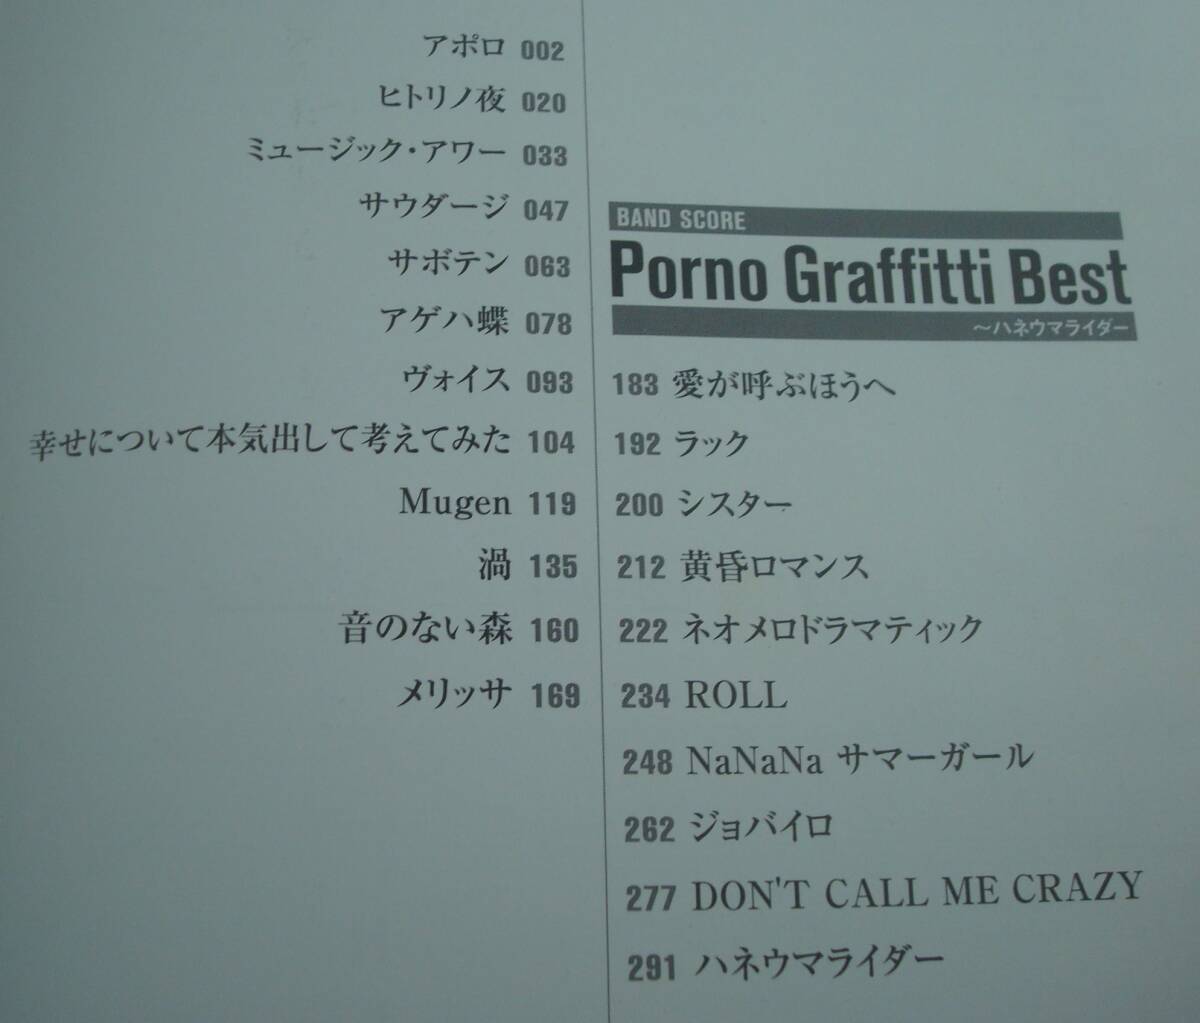 アポロ 002
ヒトリノ夜 020
ミュージック・アワー 033
サウダージ 047
サボテン 063
アゲハ蝶 078
ヴォイス 093
幸せについて本気出して考えてみた 104
Mugen 119
渦 135
音のない森 160
メリッサ 169
BAND SCORE
Porno Graffitti Best
～ハネウマライダー
183 愛が呼ぶほうへ
192 ラック
200 シスター
212 黄昏ロマンス
222 ネオメロドラマティック
234 ROLL
248 NaNaNa サマーガール
262 ジョバイロ
277 DON'T CALL ME CRAZY
291 ハネウマライダー